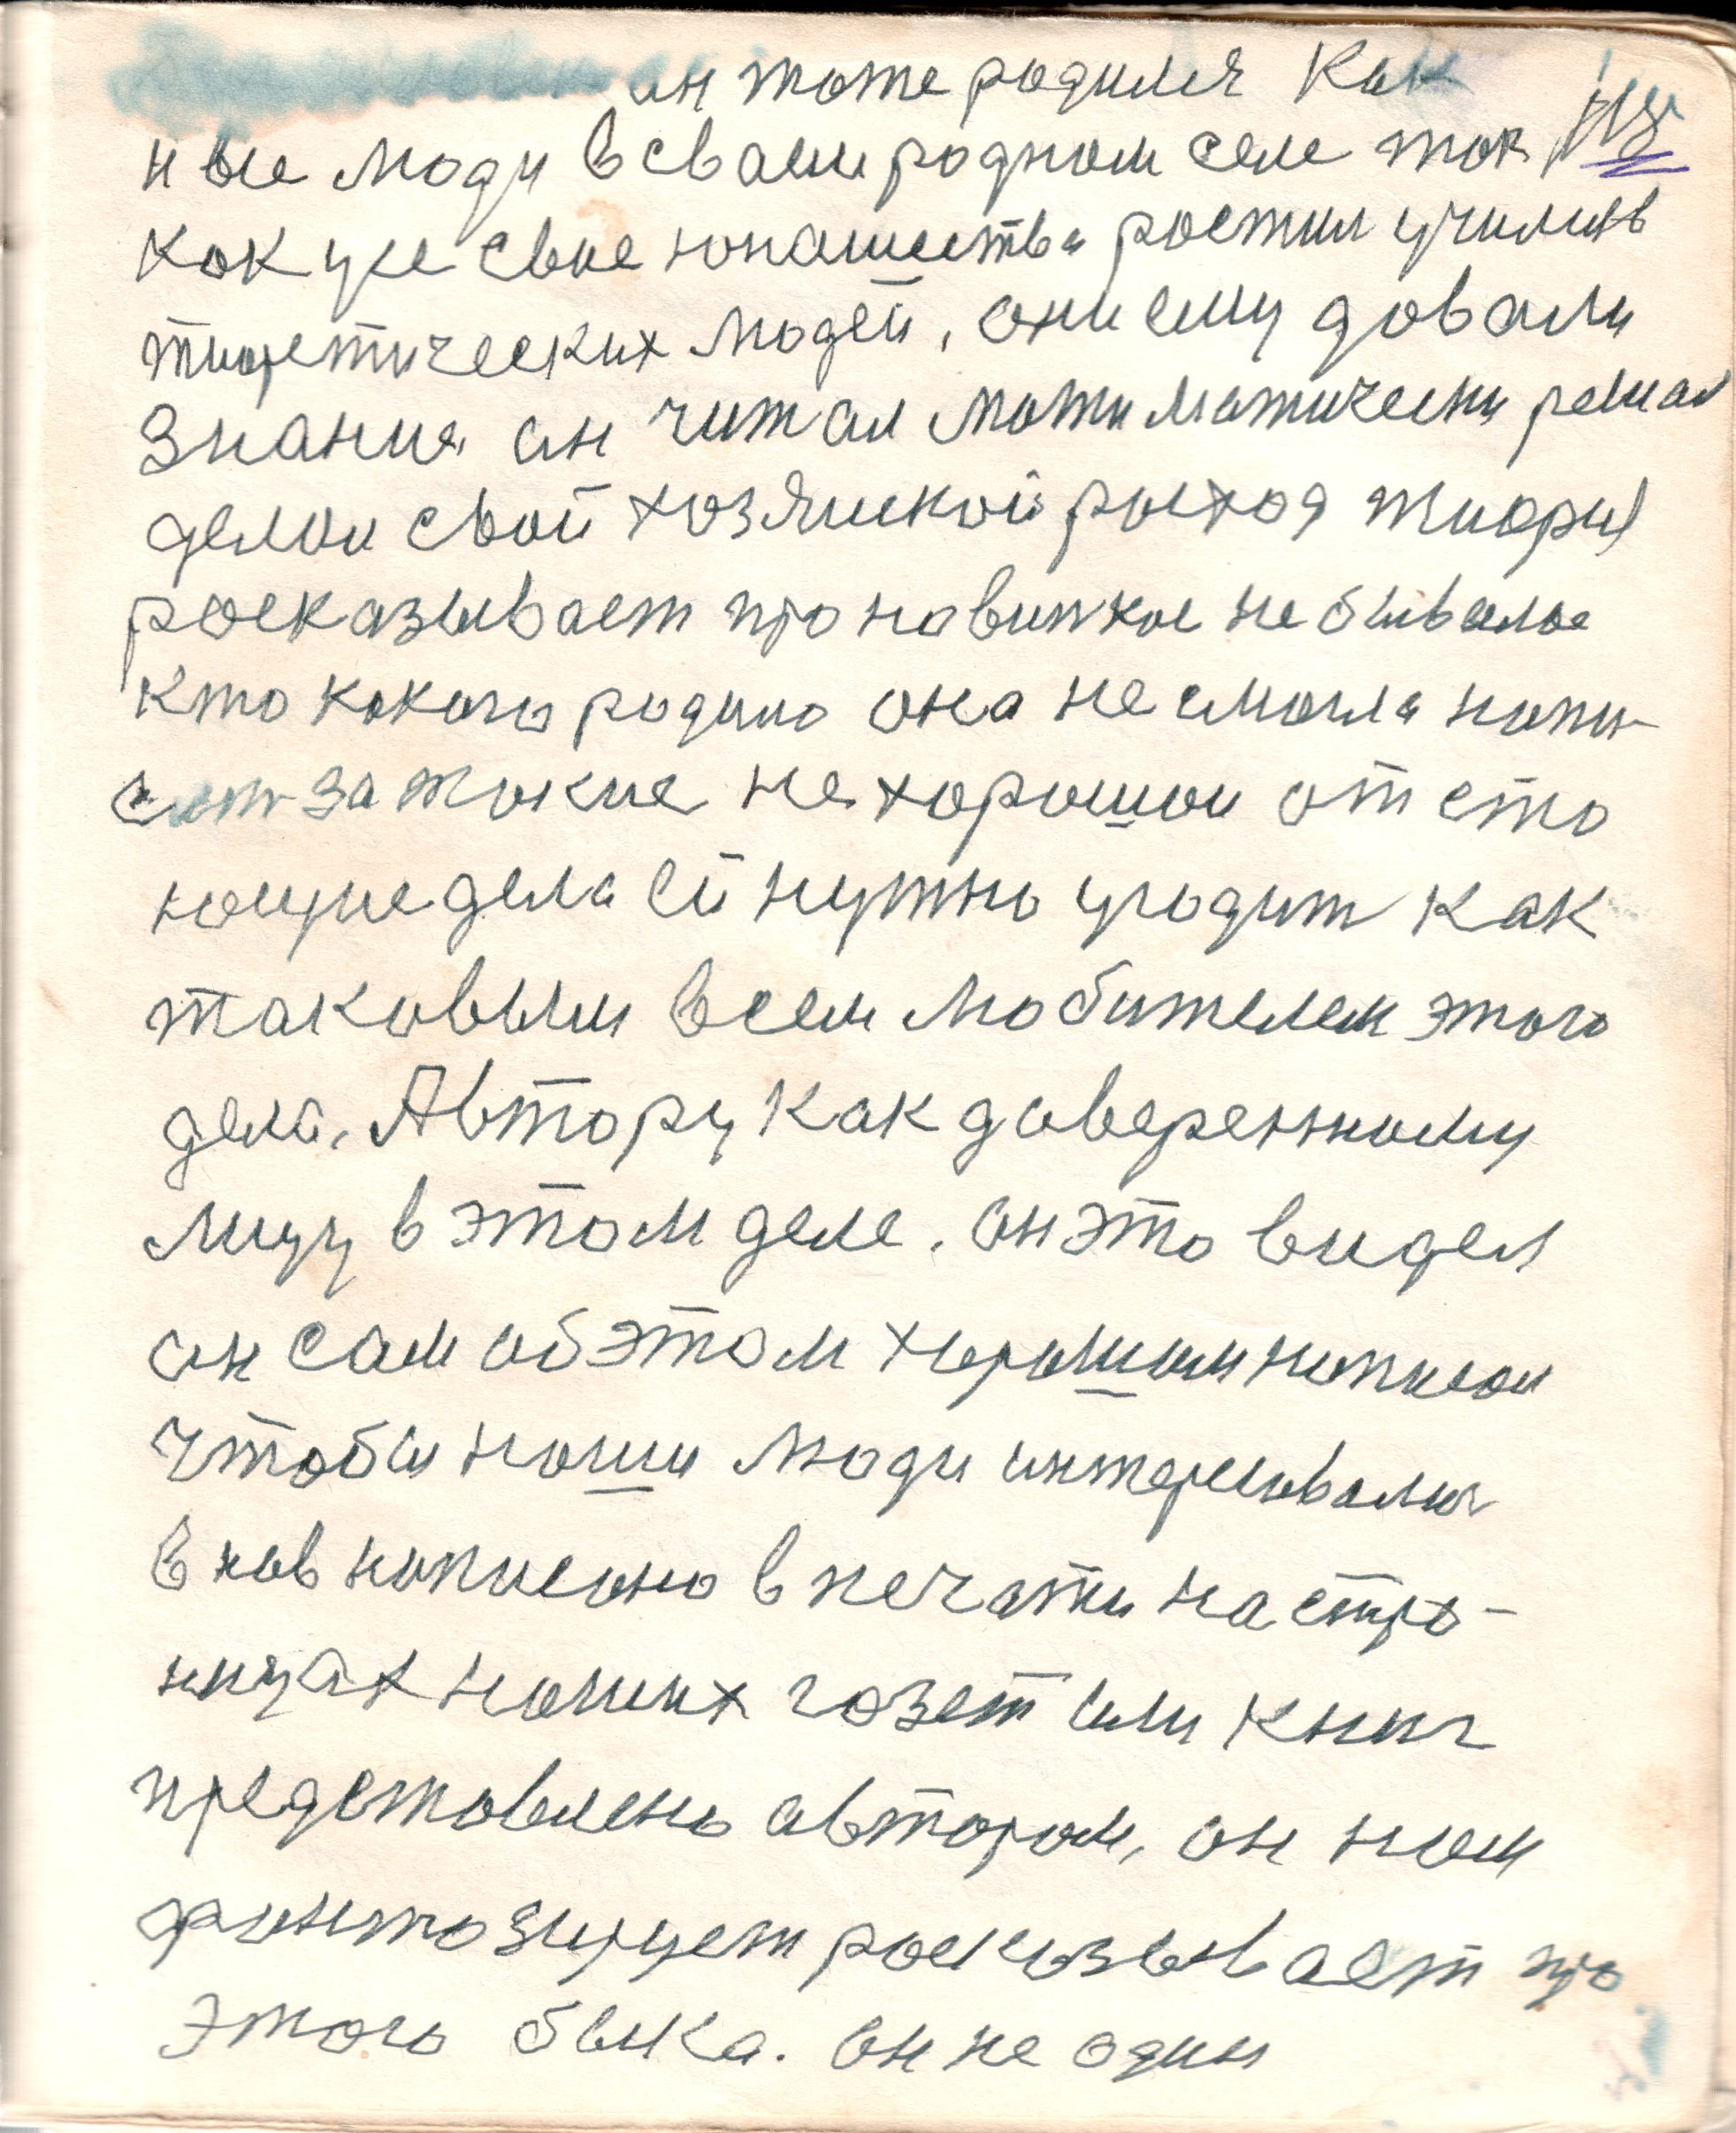 он тоже родился как
и все люди в сваем родном селе так
как уже свае юношества ростил училися
тиоретических людей, они ему довали
знание он читал мотиматически решал
делал свой хозяискои росход тиория
росказывает про новинкое небывалое
кто кокого родило она не смогла напи-
сат за токие нехорошои от сто
ющие дела ей нужно угодит как
таковым всем любителем этого
дела. Автору как доверенному
лицу в этом деле. он это видел
он сам об этом хорошим написал
чтобы наши люди интересовалис
вков написоно в печати на стра-
ницах нашых газет или книг
представлено автором, он нам
фонтозирует росказывает про
этого быка. он не один